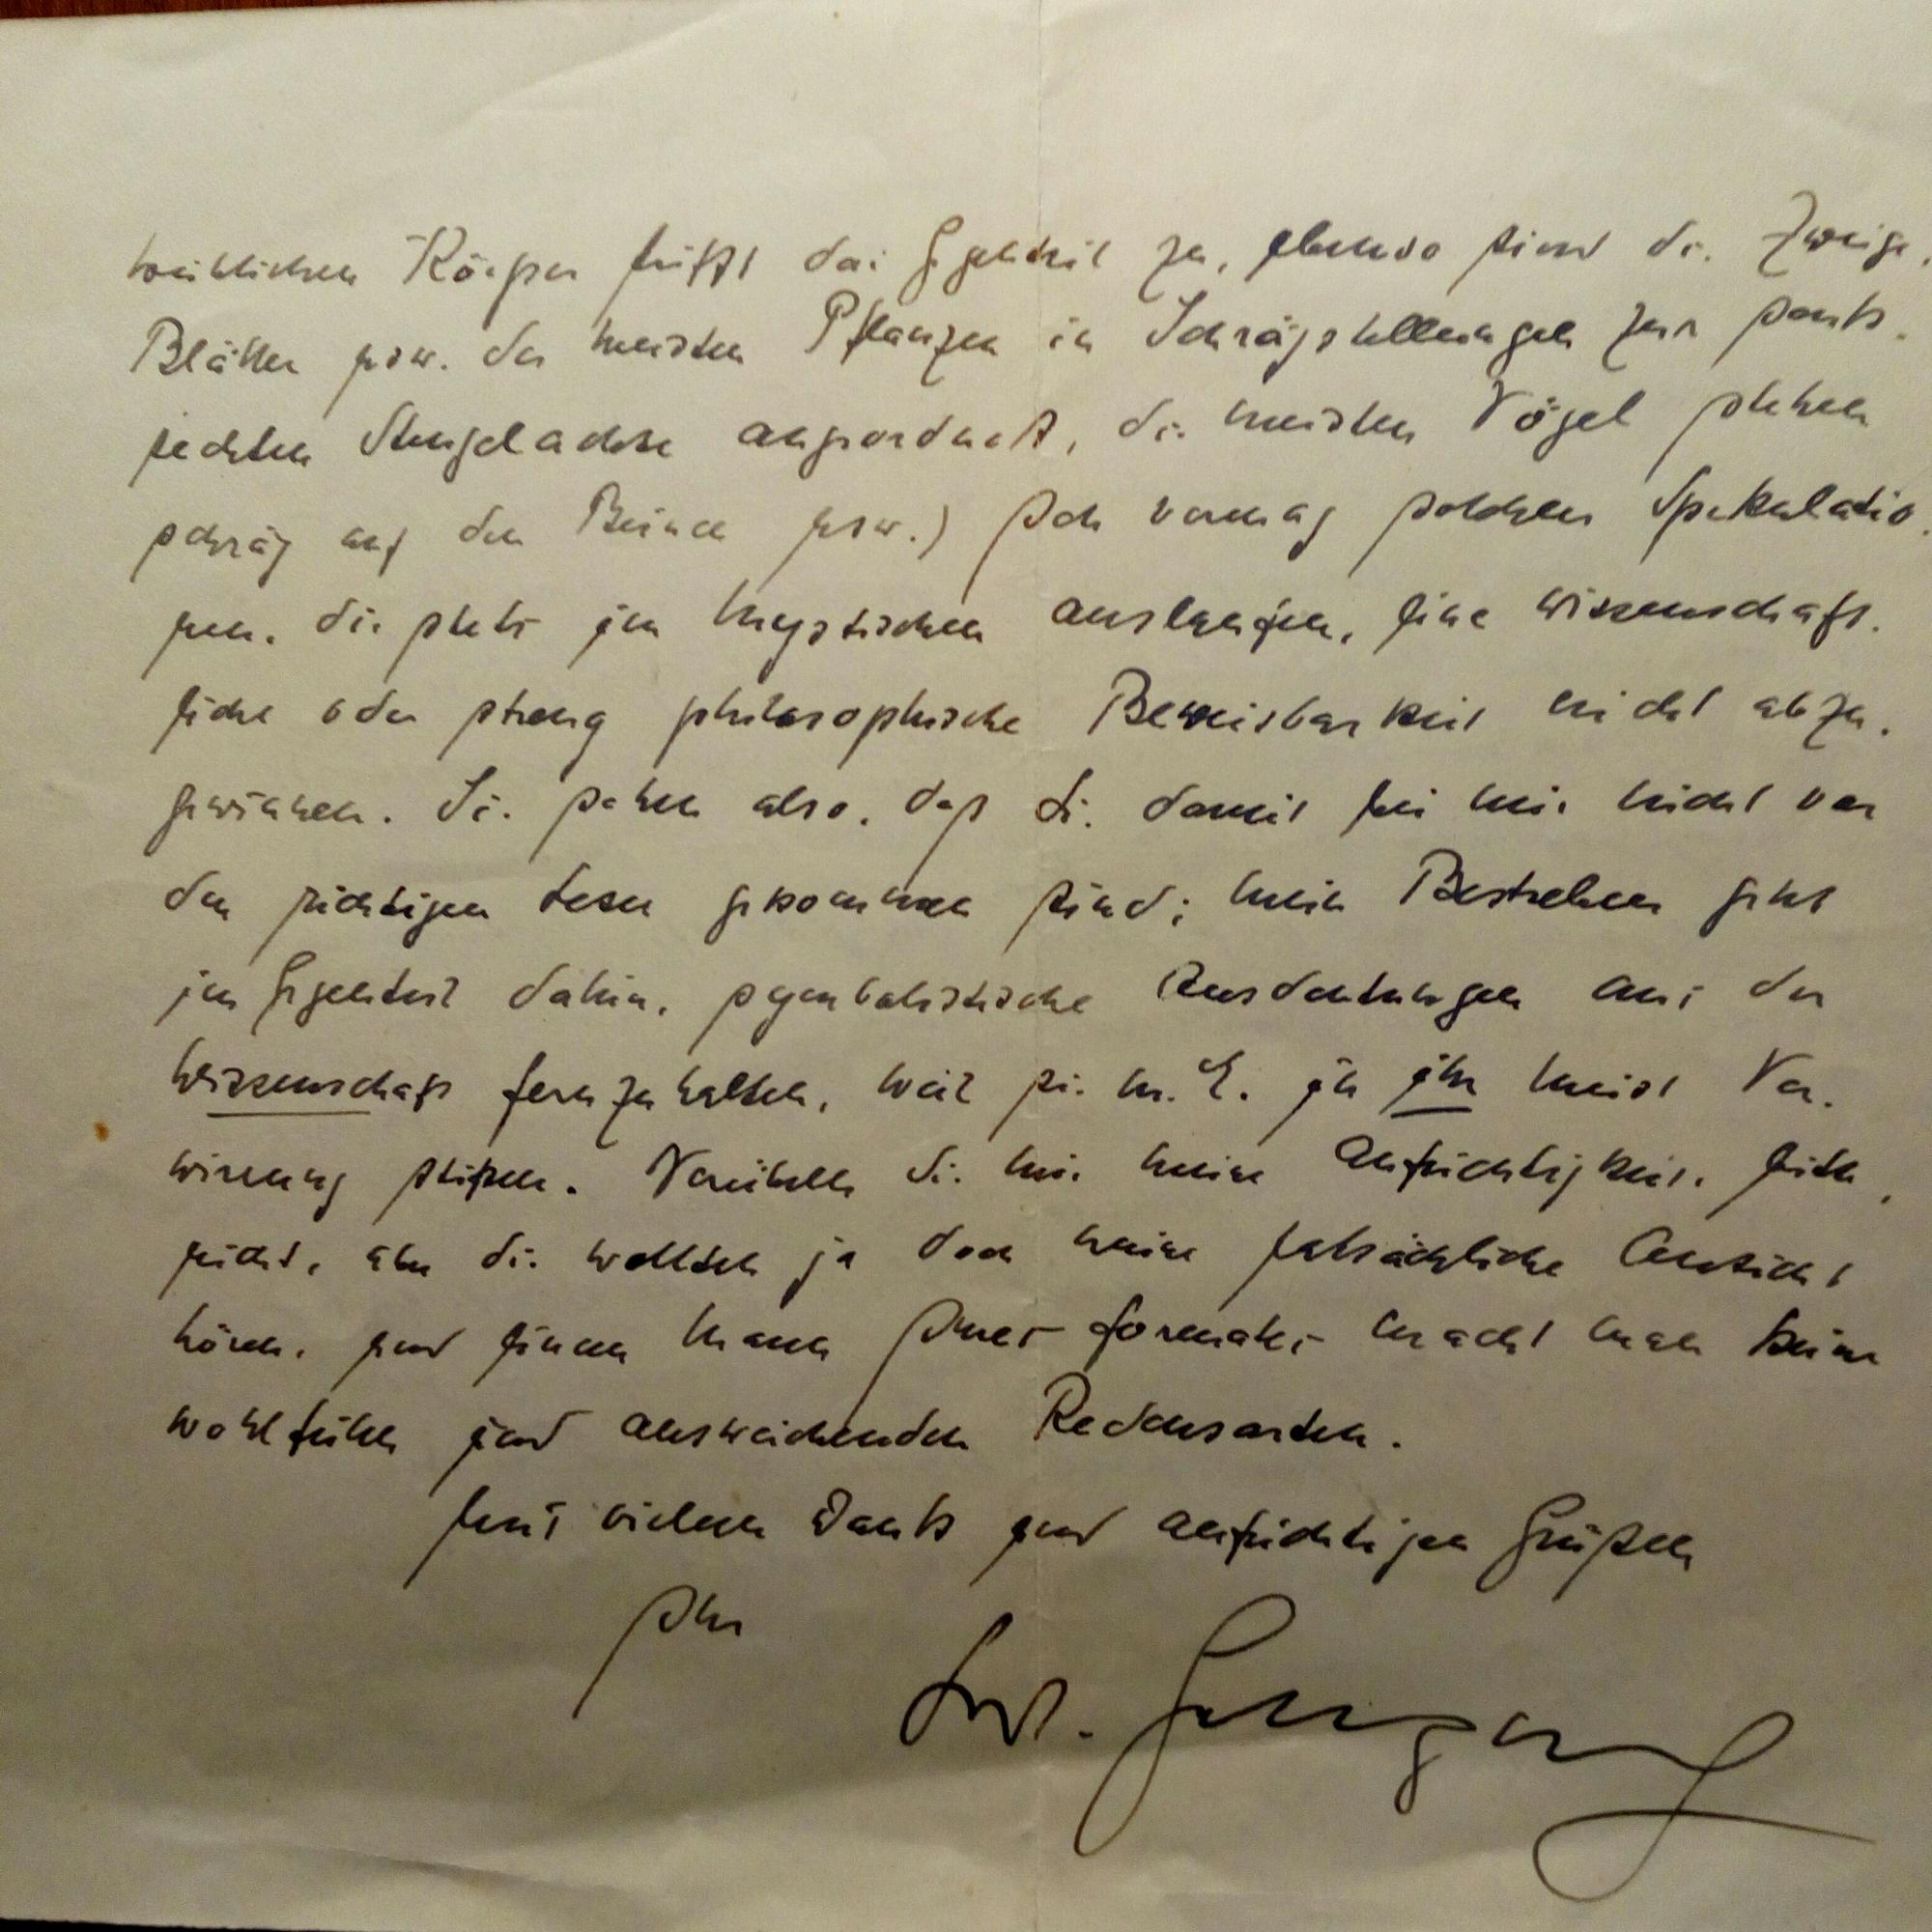 weiblichen Körper trifft das Gegenteil zu, ebenso sind die Zweige,
Blätter usw. der meisten Pflanzen in Schrägstellungen zur senk-
rechten Stengelachse angeordnet, die meisten Vögel stehen
schräg auf den Beinen usw.) Ich vermag solchen Spekulatio-
nen, die stets im Mystischen auslaufen, eine wissenschaft-
liche oder streng philosophische Beweisbarkeit nicht abzu-
gewinnen. Sie sehen also, daß Sie damit bei mir nicht vor
den richtigen Leser gekommen sind; mein Bestreben geht
im Gegenteil dahin, symbolistische Ausdeutungen aus der
Wissenschaft fernzuhalten, weil sie m. E. in ihr meist Ver-
wirrung stiften. Verübeln Sie mir meine Aufrichtigkeit, bitte,
nicht, aber Sie wollten ja doch meine tatsächliche Ansicht
hören, und einem Mann Ihres Formates macht man keine
wohlfeilen und ausweichenden Redensarten.
Mit vielem Dank und aufrichtigen Grüßen
Ihr